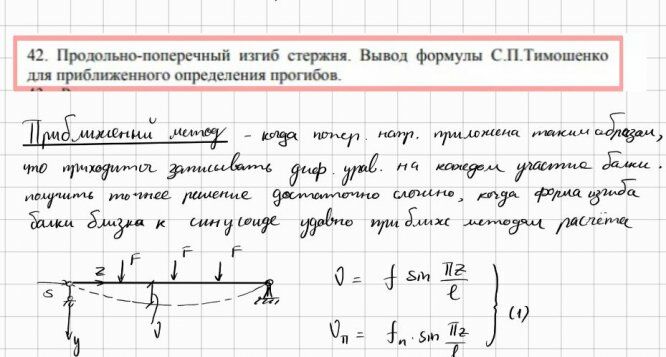 42. Продольно-поперечный изгиб стержня. Вывод формулы С.П.Тимошенко
для приближенного определения прогибов.
Приближенный метод - когда попер. нагр. приложена таким образом,
что приходится записывать диф. урав. на каждом участке балки.
получить точнее решение достаточно сложно, когда форма изгиба
балки близка к синусоиде удобно приближ методом расчёта
F F F
S z
υ = f sin πz/l
y υ
υп = fп · sin πz/l
(1)